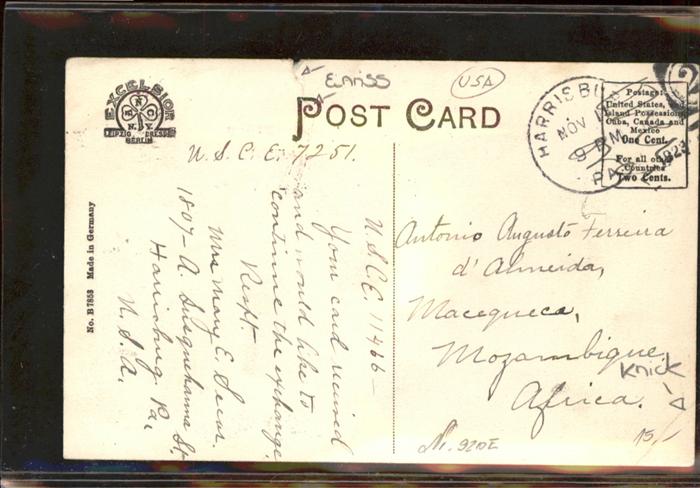 EXCELSIOR
M N O
N.Y.
LEIPZIG DRESDEN
BERLIN
No. B 7853 Made in Germany
EINRISS
USA
POST CARD
HARRISBU
NOV 1
9 PM
PA.
1923
2
Postage:
United States, and
Island Possessions,
Cuba, Canada and
Mexico
One Cent.
For all other
Countries
Two Cents.
U.S.C.E. 7251.
U.S.C.E. 11466 –
Your card received
and would like to
continue the exchange.
Respt.
Mrs Mary E.
1807-A. Susquehanna St
Harrisburg Pa
U.S.A.
Antonio Augusto Ferreira
d'Almeida,
Macequece,
Mozambique,
Africa.
Knick
Nr. 920E
15,-